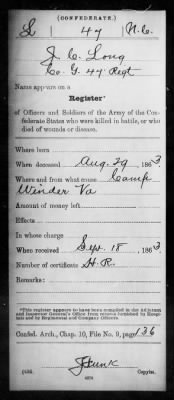 (CONFEDERATE.)
L 47 N.C.
J. C. Long
Co. G. 47 Regt
Name appears on a
Register*
of Officers and Soldiers of the Army of the Con-
federate States who were killed in battle, or who
died of wounds or disease.
Where born
When deceased Aug. 29, 1863
Where and from what cause Camp
Winder Va
Amount of money left
Effects
In whose charge
When received Sept. 18, 1863
Number of certificate H.R.
Remarks:
*This register appears to have been compiled in the Adjutant
and Inspector General's Office from returns furnished by Hospi-
tals and by Regimental and Company Officers.
Confed. Arch., Chap. 10, File No. 9, page 136
Funk
Copyist.